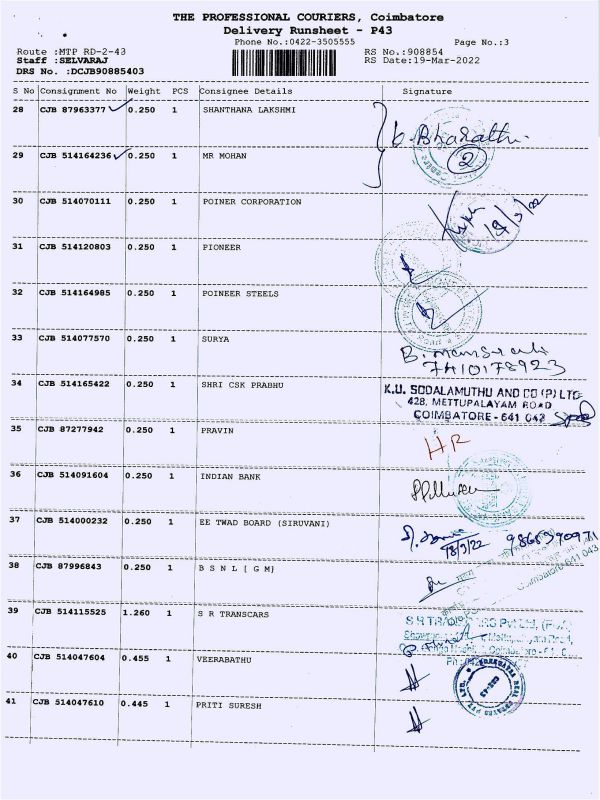 THE PROFESSIONAL COURIERS, Coimbatore
Delivery Runsheet - P43
Phone No.:0422-3505555 Page No.:3
Route :MTP RD-2-43 RS No.:908854
Staff :SELVARAJ RS Date:19-Mar-2022
DRS No. :DCJB90885403
S No Consignment No Weight PCS Consignee Details Signature
28 CJB 87963377 0.250 1 SHANTHANA LAKSHMI
29 CJB 514164236 0.250 1 MR MOHAN
2
30 CJB 514070111 0.250 1 POINER CORPORATION
31 CJB 514120803 0.250 1 PIONEER
32 CJB 514164985 0.250 1 POINEER STEELS
33 CJB 514077570 0.250 1 SURYA
7410178923
34 CJB 514165422 0.250 1 SHRI CSK PRABHU
K.U. SODALAMUTHU AND CO (P) LTD
428, METTUPALAYAM ROAD
COIMBATORE - 641 043
35 CJB 87277942 0.250 1 PRAVIN
HR
36 CJB 514091604 0.250 1 INDIAN BANK
37 CJB 514000232 0.250 1 EE TWAD BOARD (SIRUVANI)
18/3/22
38 CJB 87996843 0.250 1 B S N L [ G M}
39 CJB 514115525 1.260 1 S R TRANSCARS
40 CJB 514047604 0.455 1 VEERABATHU
41 CJB 514047610 0.445 1 PRITI SURESH